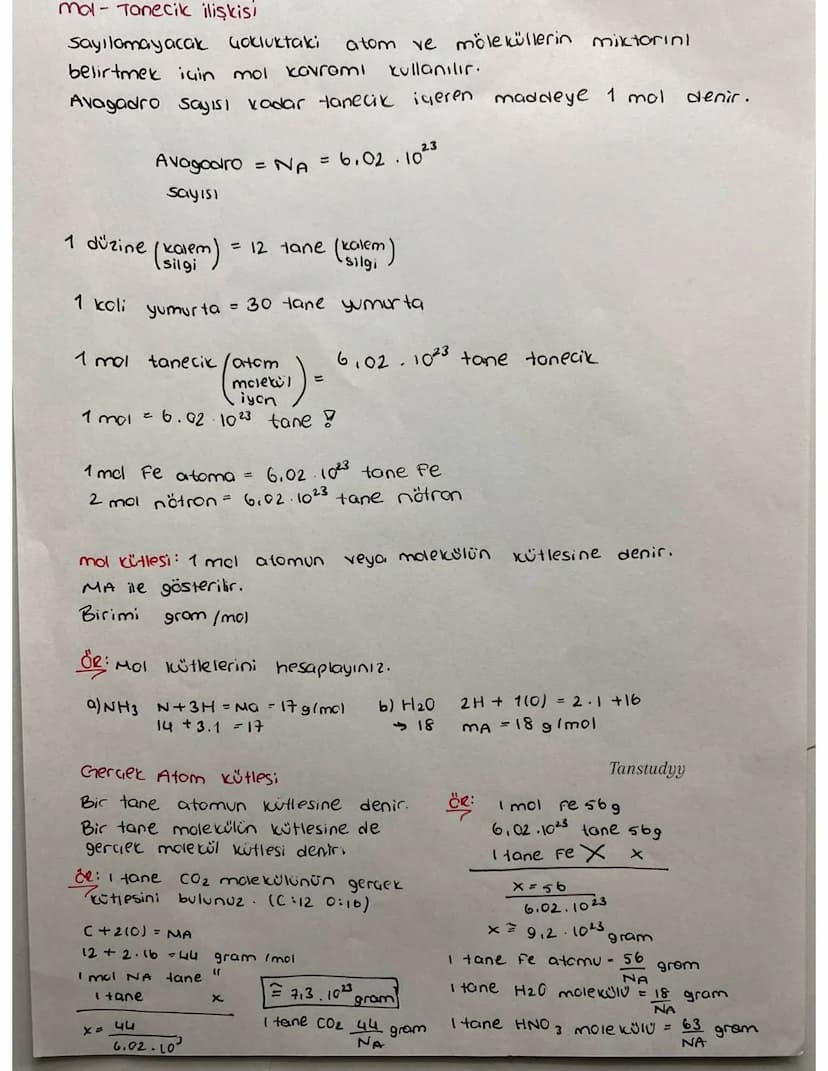 mol - Tanecik ilişkisi
sayılamayacak çokluktaki atom ve möleküllerin miktarını
belirtmek için mol kavramı kullanılır.
Avagadro sayısı kadar tanecik içeren maddeye 1 mol denir.
Avogadro = NA = 6,02 . 10²³
sayısı
1 düzine (kalem silgi) = 12 tane (kalem silgi)
1 koli yumurta = 30 tane yumurta
1 mol tanecik (atom molekül iyon) = 6,02 . 10²³ tane tanecik
1 mol = 6.02 . 10²³ tane !
1 mol Fe atoma = 6,02 . 10²³ tane Fe
2 mol nötron = 6,02 . 10²³ tane nötron
mol kütlesi: 1 mol atomun veya molekülün kütlesine denir.
MA ile gösterilir.
Birimi gram/mol
Ör: Mol kütlelerini hesaplayınız.
a) NH₃ N + 3H = Ma = 17 g/mol b) H₂O 2H + 1(O) = 2.1 + 16
14 + 3.1 = 17 → 18 MA = 18 g/mol
Tanstudyy
Gerçek Atom kütlesi
Bir tane atomun kütlesine denir.
Bir tane molekülün kütlesine de
gerçek molekül kütlesi denir.
Ör: 1 tane CO₂ molekülünün gerçek
kütlesini bulunuz. (C:12 O:16)
C + 2(O) = MA
12 + 2.16 = 44 gram/mol
1 mol NA tane "
1 tane x
x = 44
6.02 . 10³
≅ 7,3 . 10²³ gram
1 tane CO₂ 44/NA gram
Ör: 1 mol Fe 56 g
6,02 . 10²³ tane 56g
1 tane Fe X x
x = 56
6,02 . 10²³
x ≅ 9,2 . 10²³ gram
1 tane Fe atomu = 56/NA gram
1 tane H₂O molekülü = 18/NA gram
1 tane HNO₃ molekülü = 63/NA gram